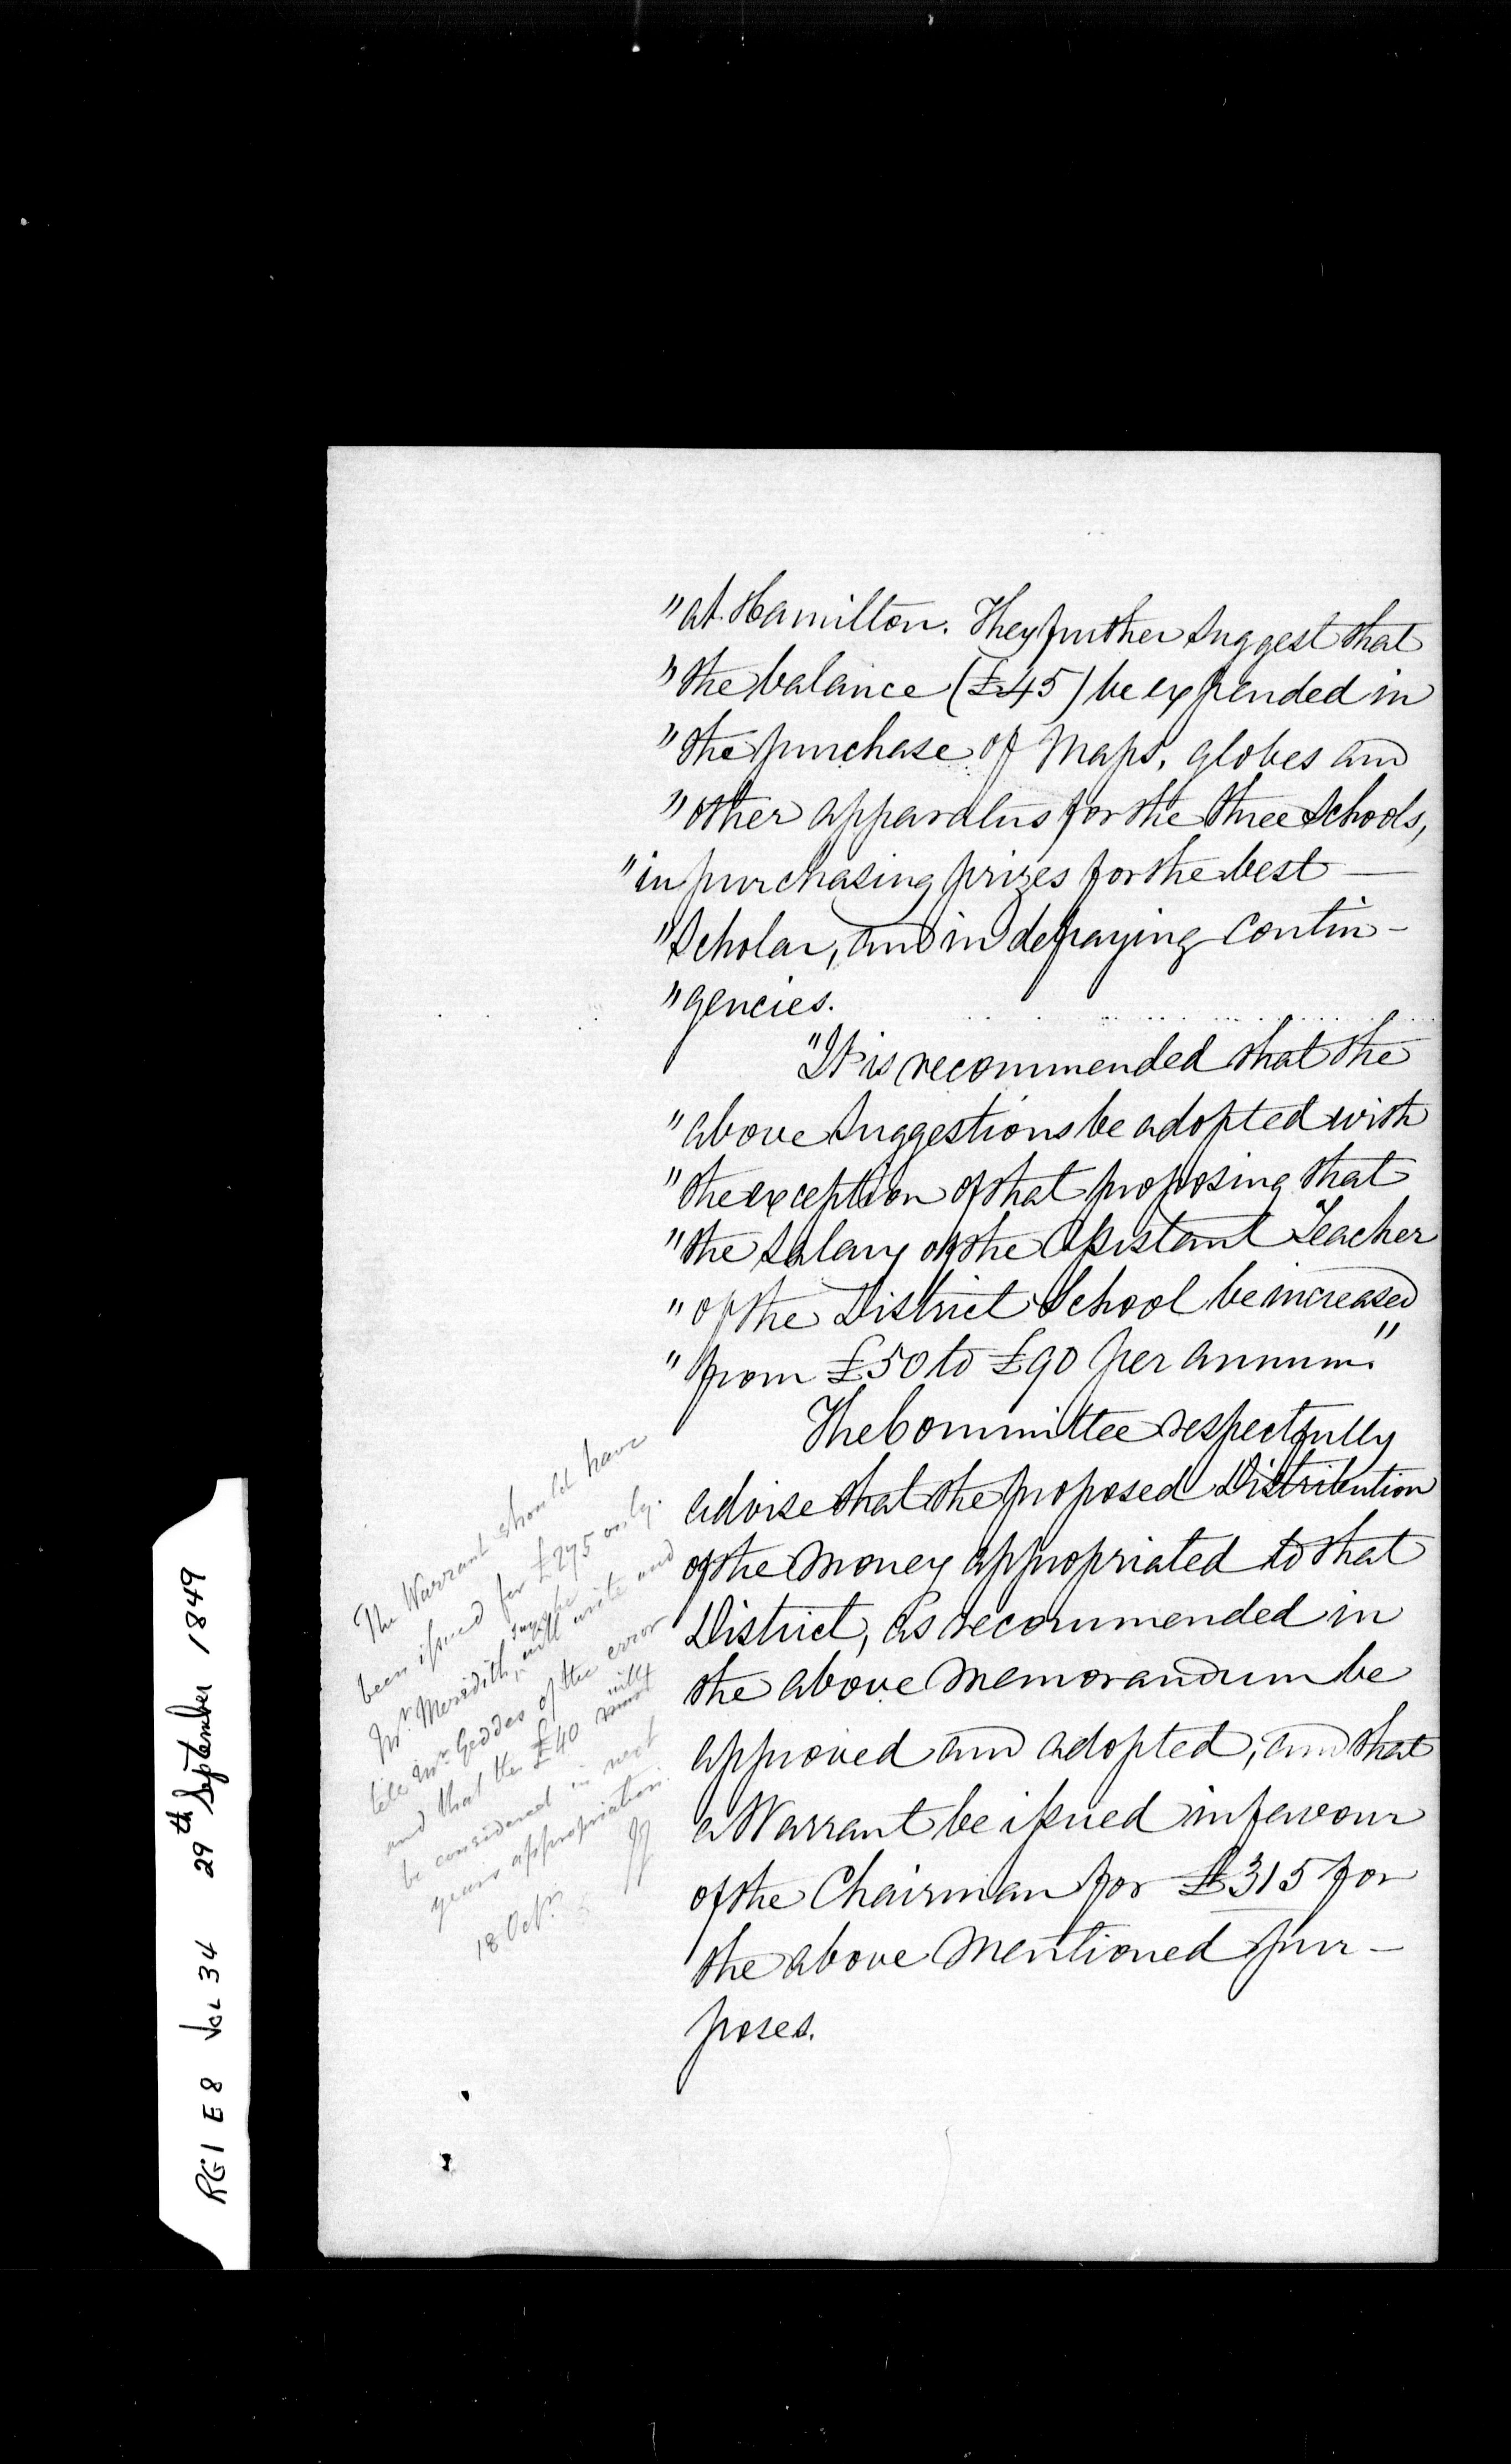 "at Hamilton. They further Suggest that
"the balance (£45) be expended in
"the purchase of Maps, globes and
"other apparatus for the three Schools,
"in purchasing prizes for the best —
"Scholar, and in defraying Contin-
"gencies.
"It is recommended that the
"above Suggestions be adopted with
"the exception of that proposing that
"the Salary of the Assistant Teacher
"of the District School be increased
"from £50 to £90 per annum."
The Committee respectfully
advise that the proposed Distribution
of the Money appropriated to that
District, as recommended in
the above Memorandum be
approved and adopted, and that
a Warrant be issued in favour
of the Chairman for £315 for
the above Mentioned pur-
poses.
The Warrant should have
been issued for £275 only.
Mr. Meredith, will write and
tell Mr. Geddes of the error
and that the £40 will
be considered in next
years appropriation.
18 Octr.
RG 1 E 8 Vol 34 29th September 1849